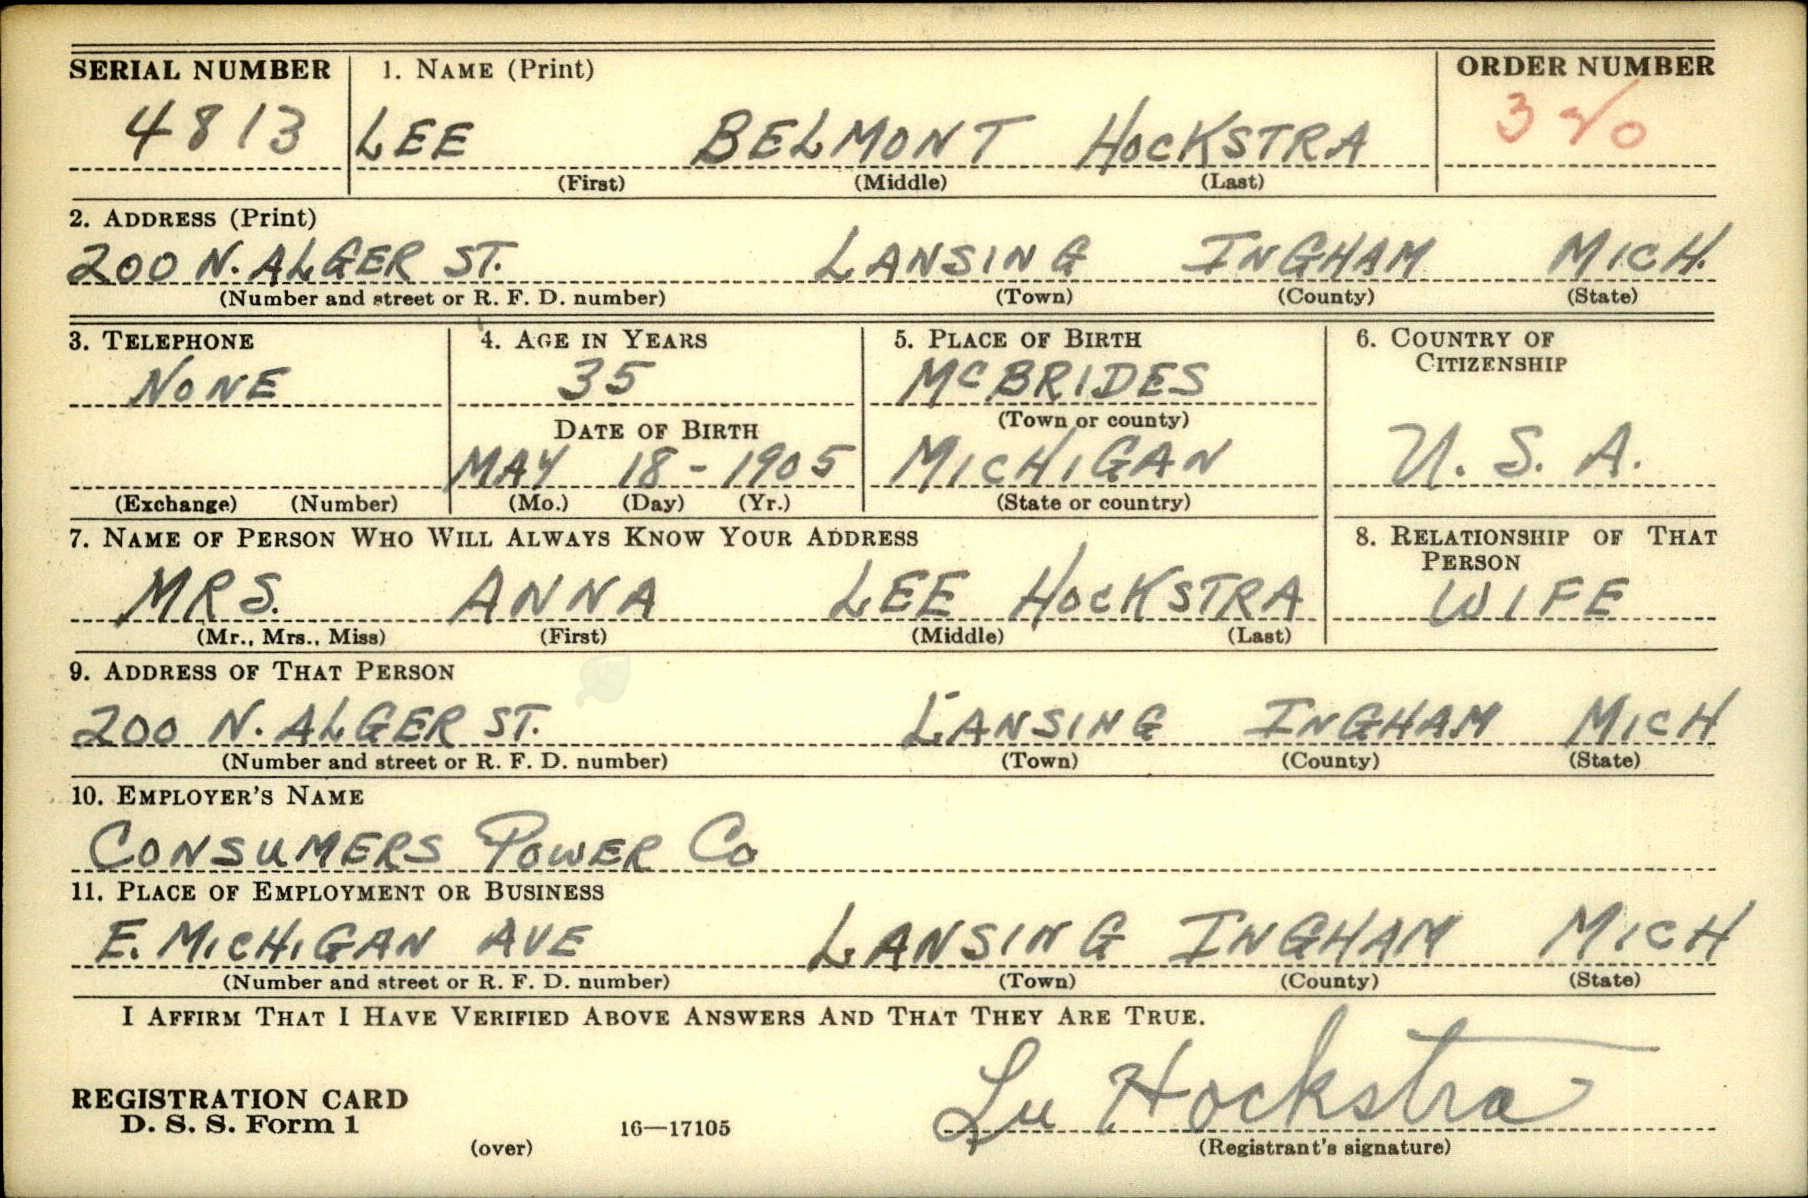 SERIAL NUMBER 1. NAME (Print) ORDER NUMBER
4813 LEE BELMONT HOCKSTRA 320
(First) (Middle) (Last)
2. ADDRESS (Print)
200 N. ALGER ST. LANSING INGHAM MICH.
(Number and street or R. F. D. number) (Town) (County) (State)
3. TELEPHONE 4. AGE IN YEARS 5. PLACE OF BIRTH 6. COUNTRY OF
CITIZENSHIP
NONE 35 McBRIDES
(Town or county)
DATE OF BIRTH
MAY 18-1905 MICHIGAN U. S. A.
(Exchange) (Number) (Mo.) (Day) (Yr.) (State or country)
7. NAME OF PERSON WHO WILL ALWAYS KNOW YOUR ADDRESS 8. RELATIONSHIP OF THAT
PERSON
MRS. ANNA LEE HOCKSTRA WIFE
(Mr., Mrs., Miss) (First) (Middle) (Last)
9. ADDRESS OF THAT PERSON
200 N. ALGER ST. LANSING INGHAM MICH
(Number and street or R. F. D. number) (Town) (County) (State)
10. EMPLOYER'S NAME
CONSUMERS POWER CO
11. PLACE OF EMPLOYMENT OR BUSINESS
E. MICHIGAN AVE LANSING INGHAM MICH
(Number and street or R. F. D. number) (Town) (County) (State)
I AFFIRM THAT I HAVE VERIFIED ABOVE ANSWERS AND THAT THEY ARE TRUE.
Lee Hockstra
REGISTRATION CARD
D. S. S. Form 1 (over) 16—17105 (Registrant's signature)